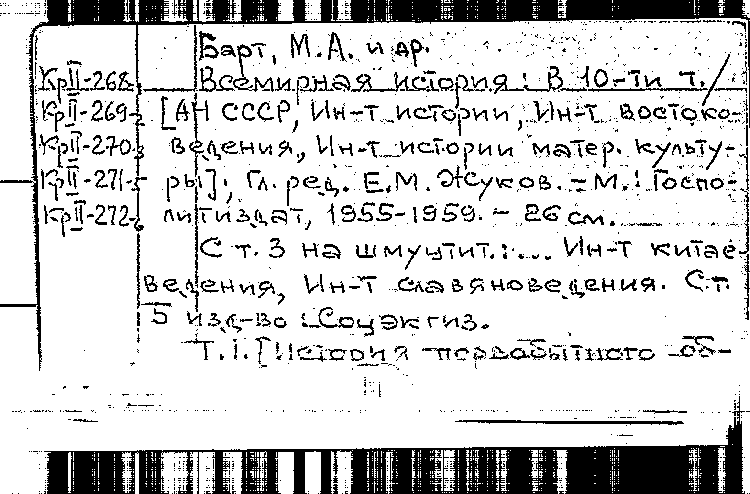 Барт, М.А. и др.
КрII-268 Всемирная история: В 10-ти т. /
КрII-269-2 [АН СССР, Ин-т истории, Ин-т востоко-
КрII-270-3 ведения, Ин-т истории матер. культу-
КрII-271-5 ры]; Гл. ред. Е.М. Жуков. - М.: Госпо-
КрII-272-6 литиздат, 1955-1959. - 26 см.
С т. 3 на шмуцтит.:... Ин-т китае-
ведения, Ин-т славяноведения. С т.
5 изд-во: Соцэкгиз.
Т.1. [История первобытного об-